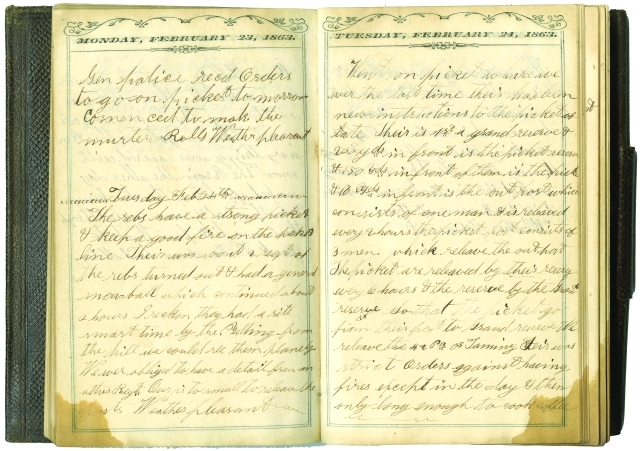 MONDAY, FEBRUARY 23, 1863.
Gen police recd Orders
to go on picket to morrow
Comenced to mak the
murter Rolls Weather pleasant
Tuesday Feb 24th
The rebs have a strong picket
& keep a good fire on the
line Their was about
the rebs turned out & had a
snowball which continued about
2 hours I reckon they had a
smart time by the from
the hill we could see them plane
We wer oblige to have a detail from an
other Regt Our is to small to releave the
Weather pleasant
TUESDAY, FEBRUARY 24, 1863.
Went on picket where we
wer the last time their has been
new instructions to the pickets of
late Their is 1st a grand reserve &
in front is the picket reserve
& 150 in front of them is the picket
& in front is the out post which
consists of one man & is releaved
evry 2 hours the picket post consists of
3 men which releave the out post
The picket are releaved by their reserv
evry 6 hours & the reserve by the
reserve So that the picket go
from their post to Grand reserve We
releave the Their was
strict Orders against having
fires except in the day & then
only long enough to cook